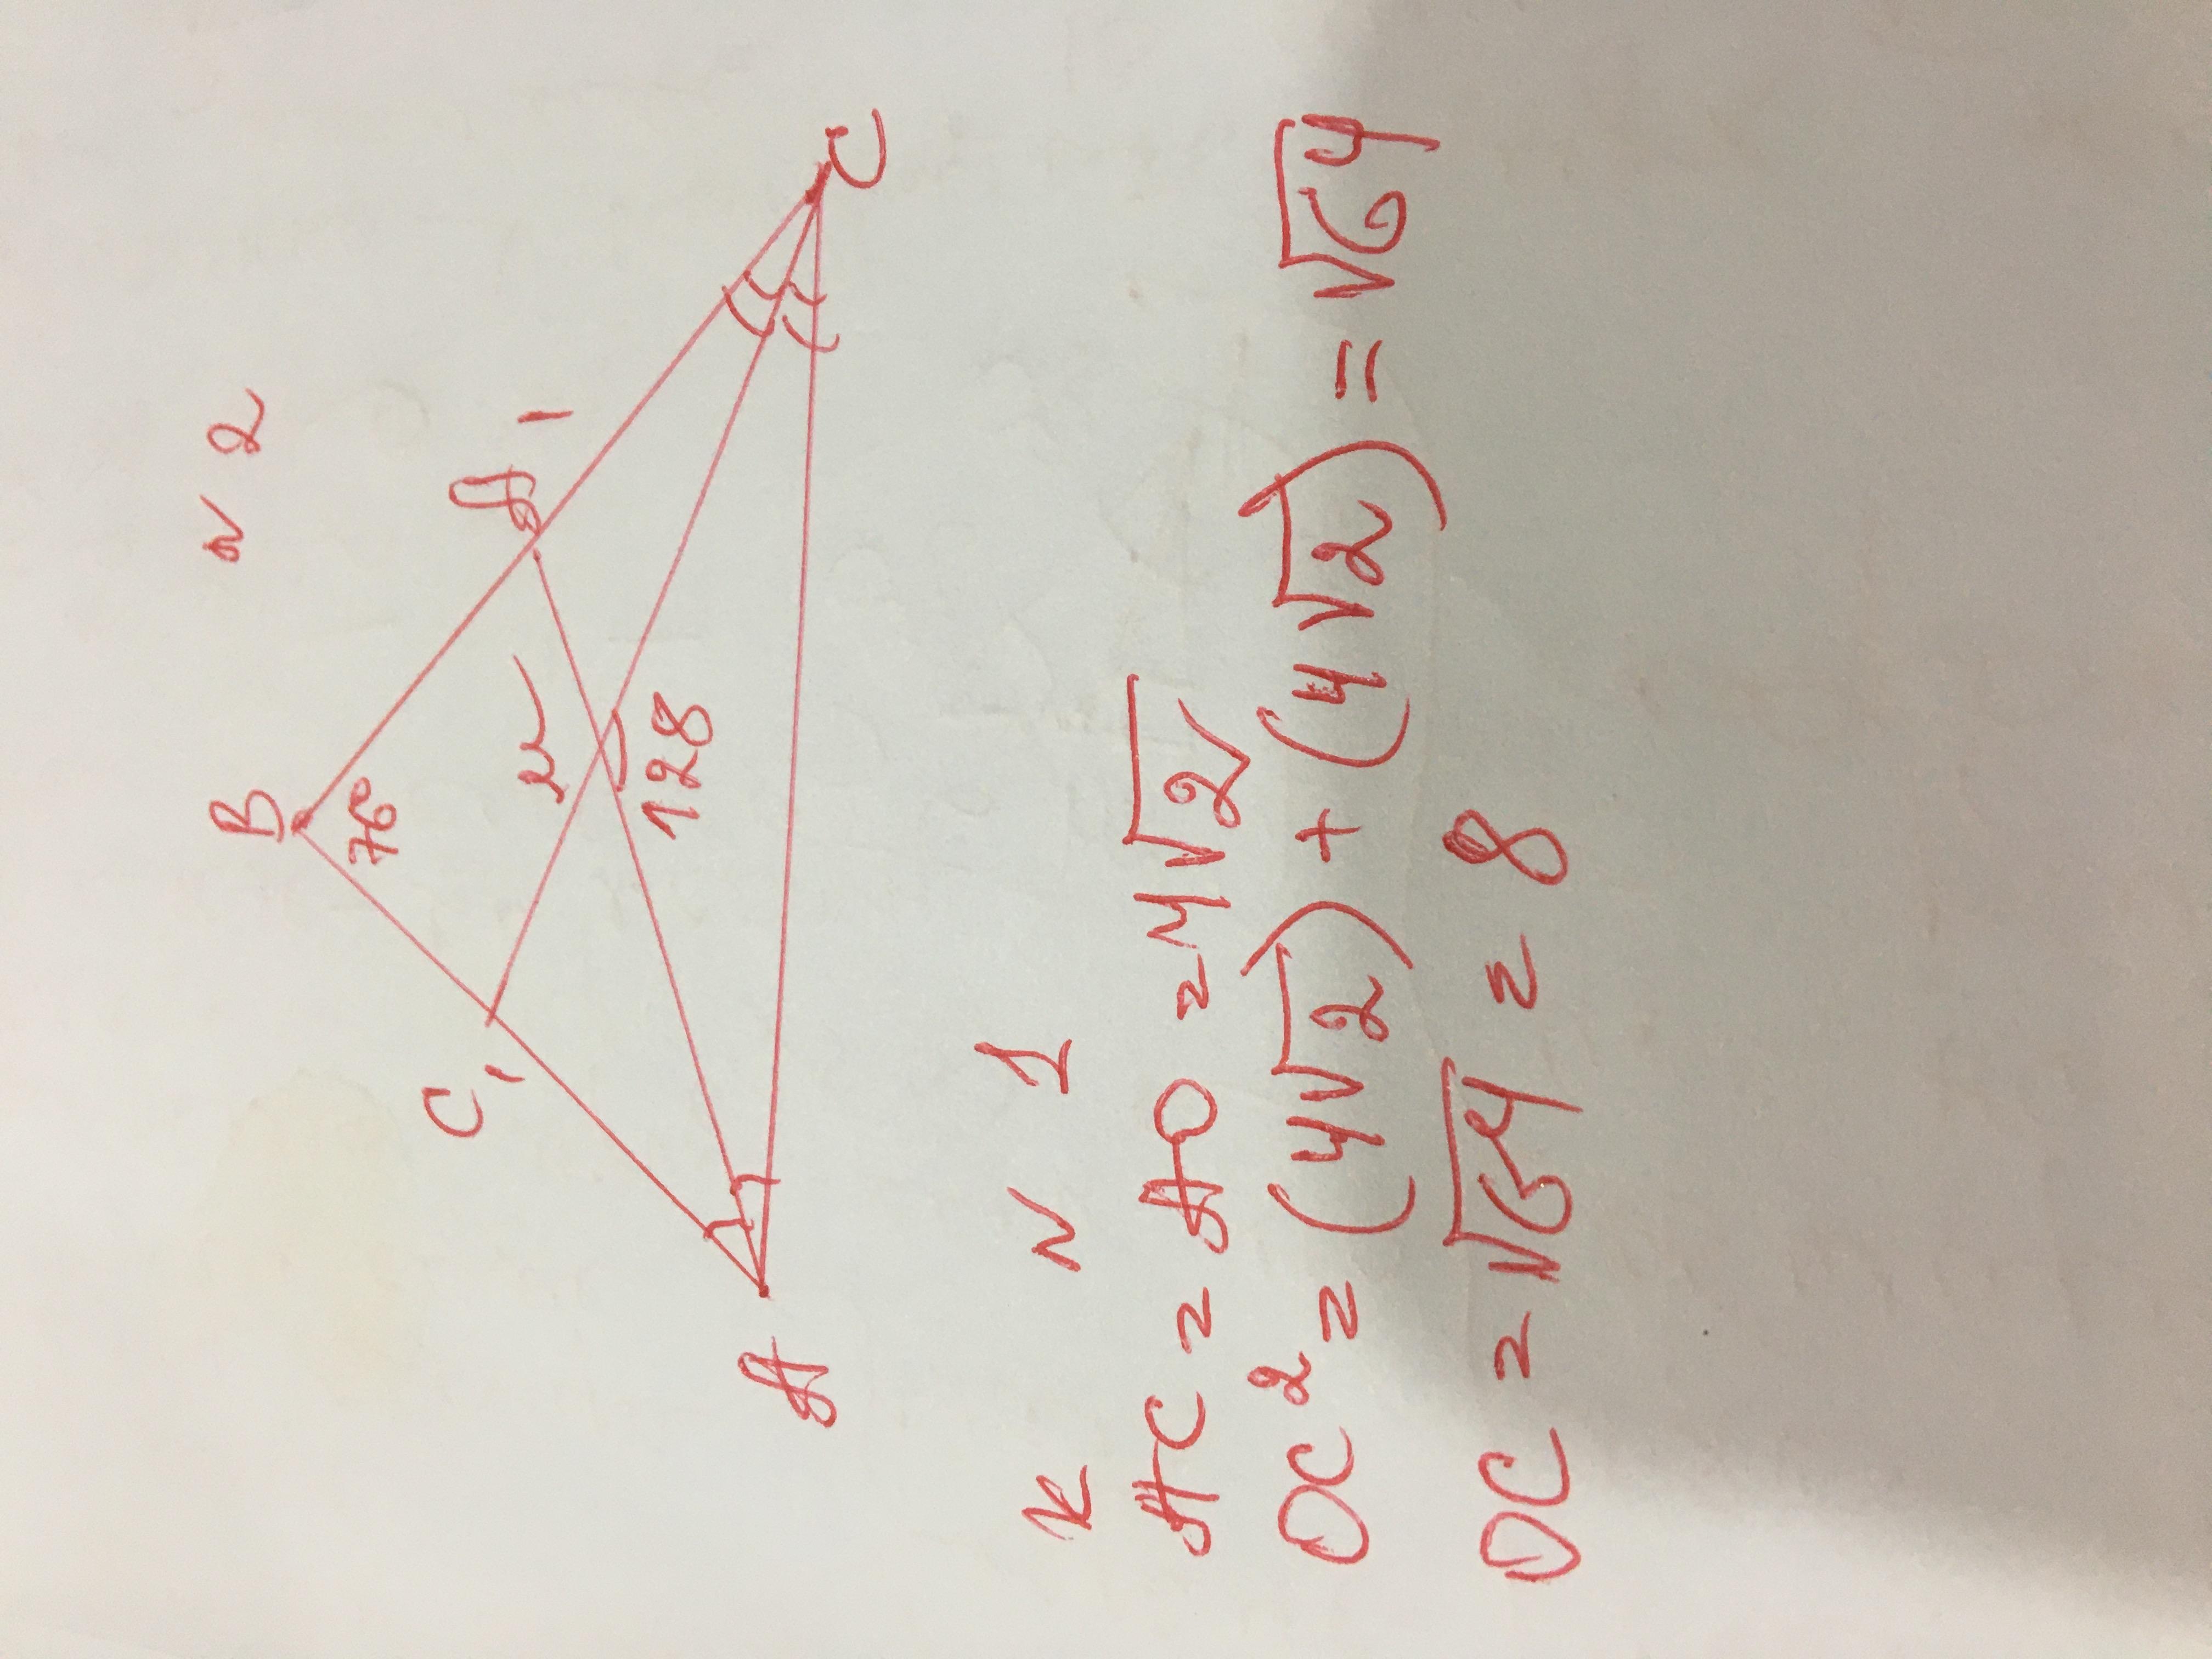 N 2
B
76
A1
C1
M
128
A
C
К N 1
AC = AD = 4√2
DC² = (4√2) + (4√2) = √64
DC = √64 = 8